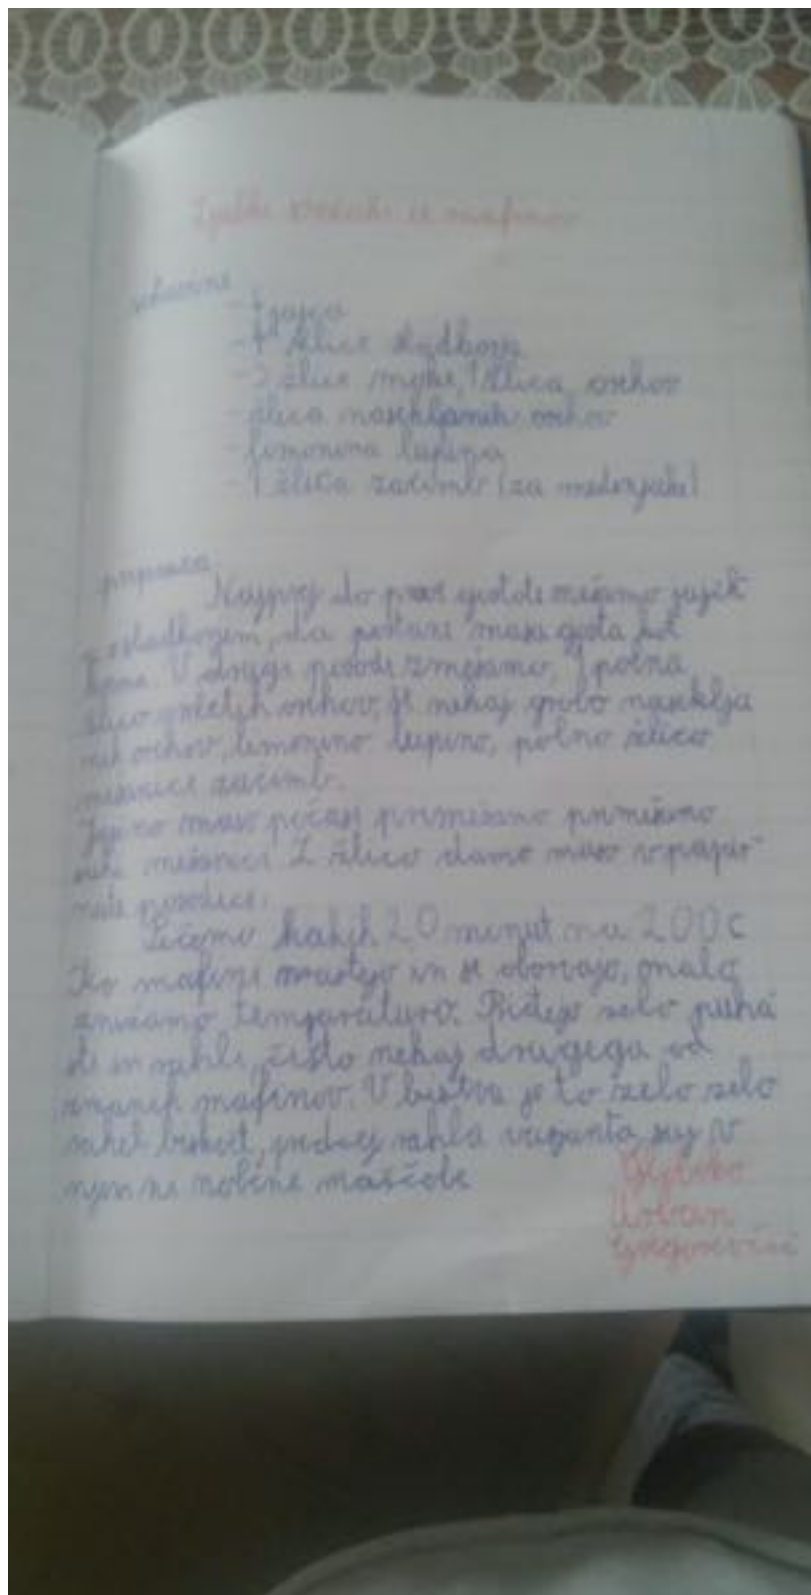 sestavine
- 4 jajca
- 4 žlice sladkorja
- 3 žlice moke, 1 žlica orehov
- žlica naseklanih orehov
- limonina lupina
- 1 žlica začimb (za medenjake)
priprava
Najprej do prve gostote mešamo jajčk
s sladkorjem, da postane masa gosta kot
V drugi posodi zmešamo, 1 polna
žlico mletih orehov, še nekaj grobo naseklja
nih orehov, limonino lupino, polno žlico
mešanice začimb.
maso počasi primešamo primešamo
suhi mešanici. Z žlico damo maso v papir
nate posodice.
Pečemo kakih 20 minut na 200 C
Ko mafini narastejo in se obarvajo, malo
znižamo temperaturo. zelo puha
sti in rahli, čisto nekaj drugega od
znanih mafinov. V bistvu je to zelo zelo
rahel biskvit, precej rahla varjanta saj v
njem ni nobene maščobe